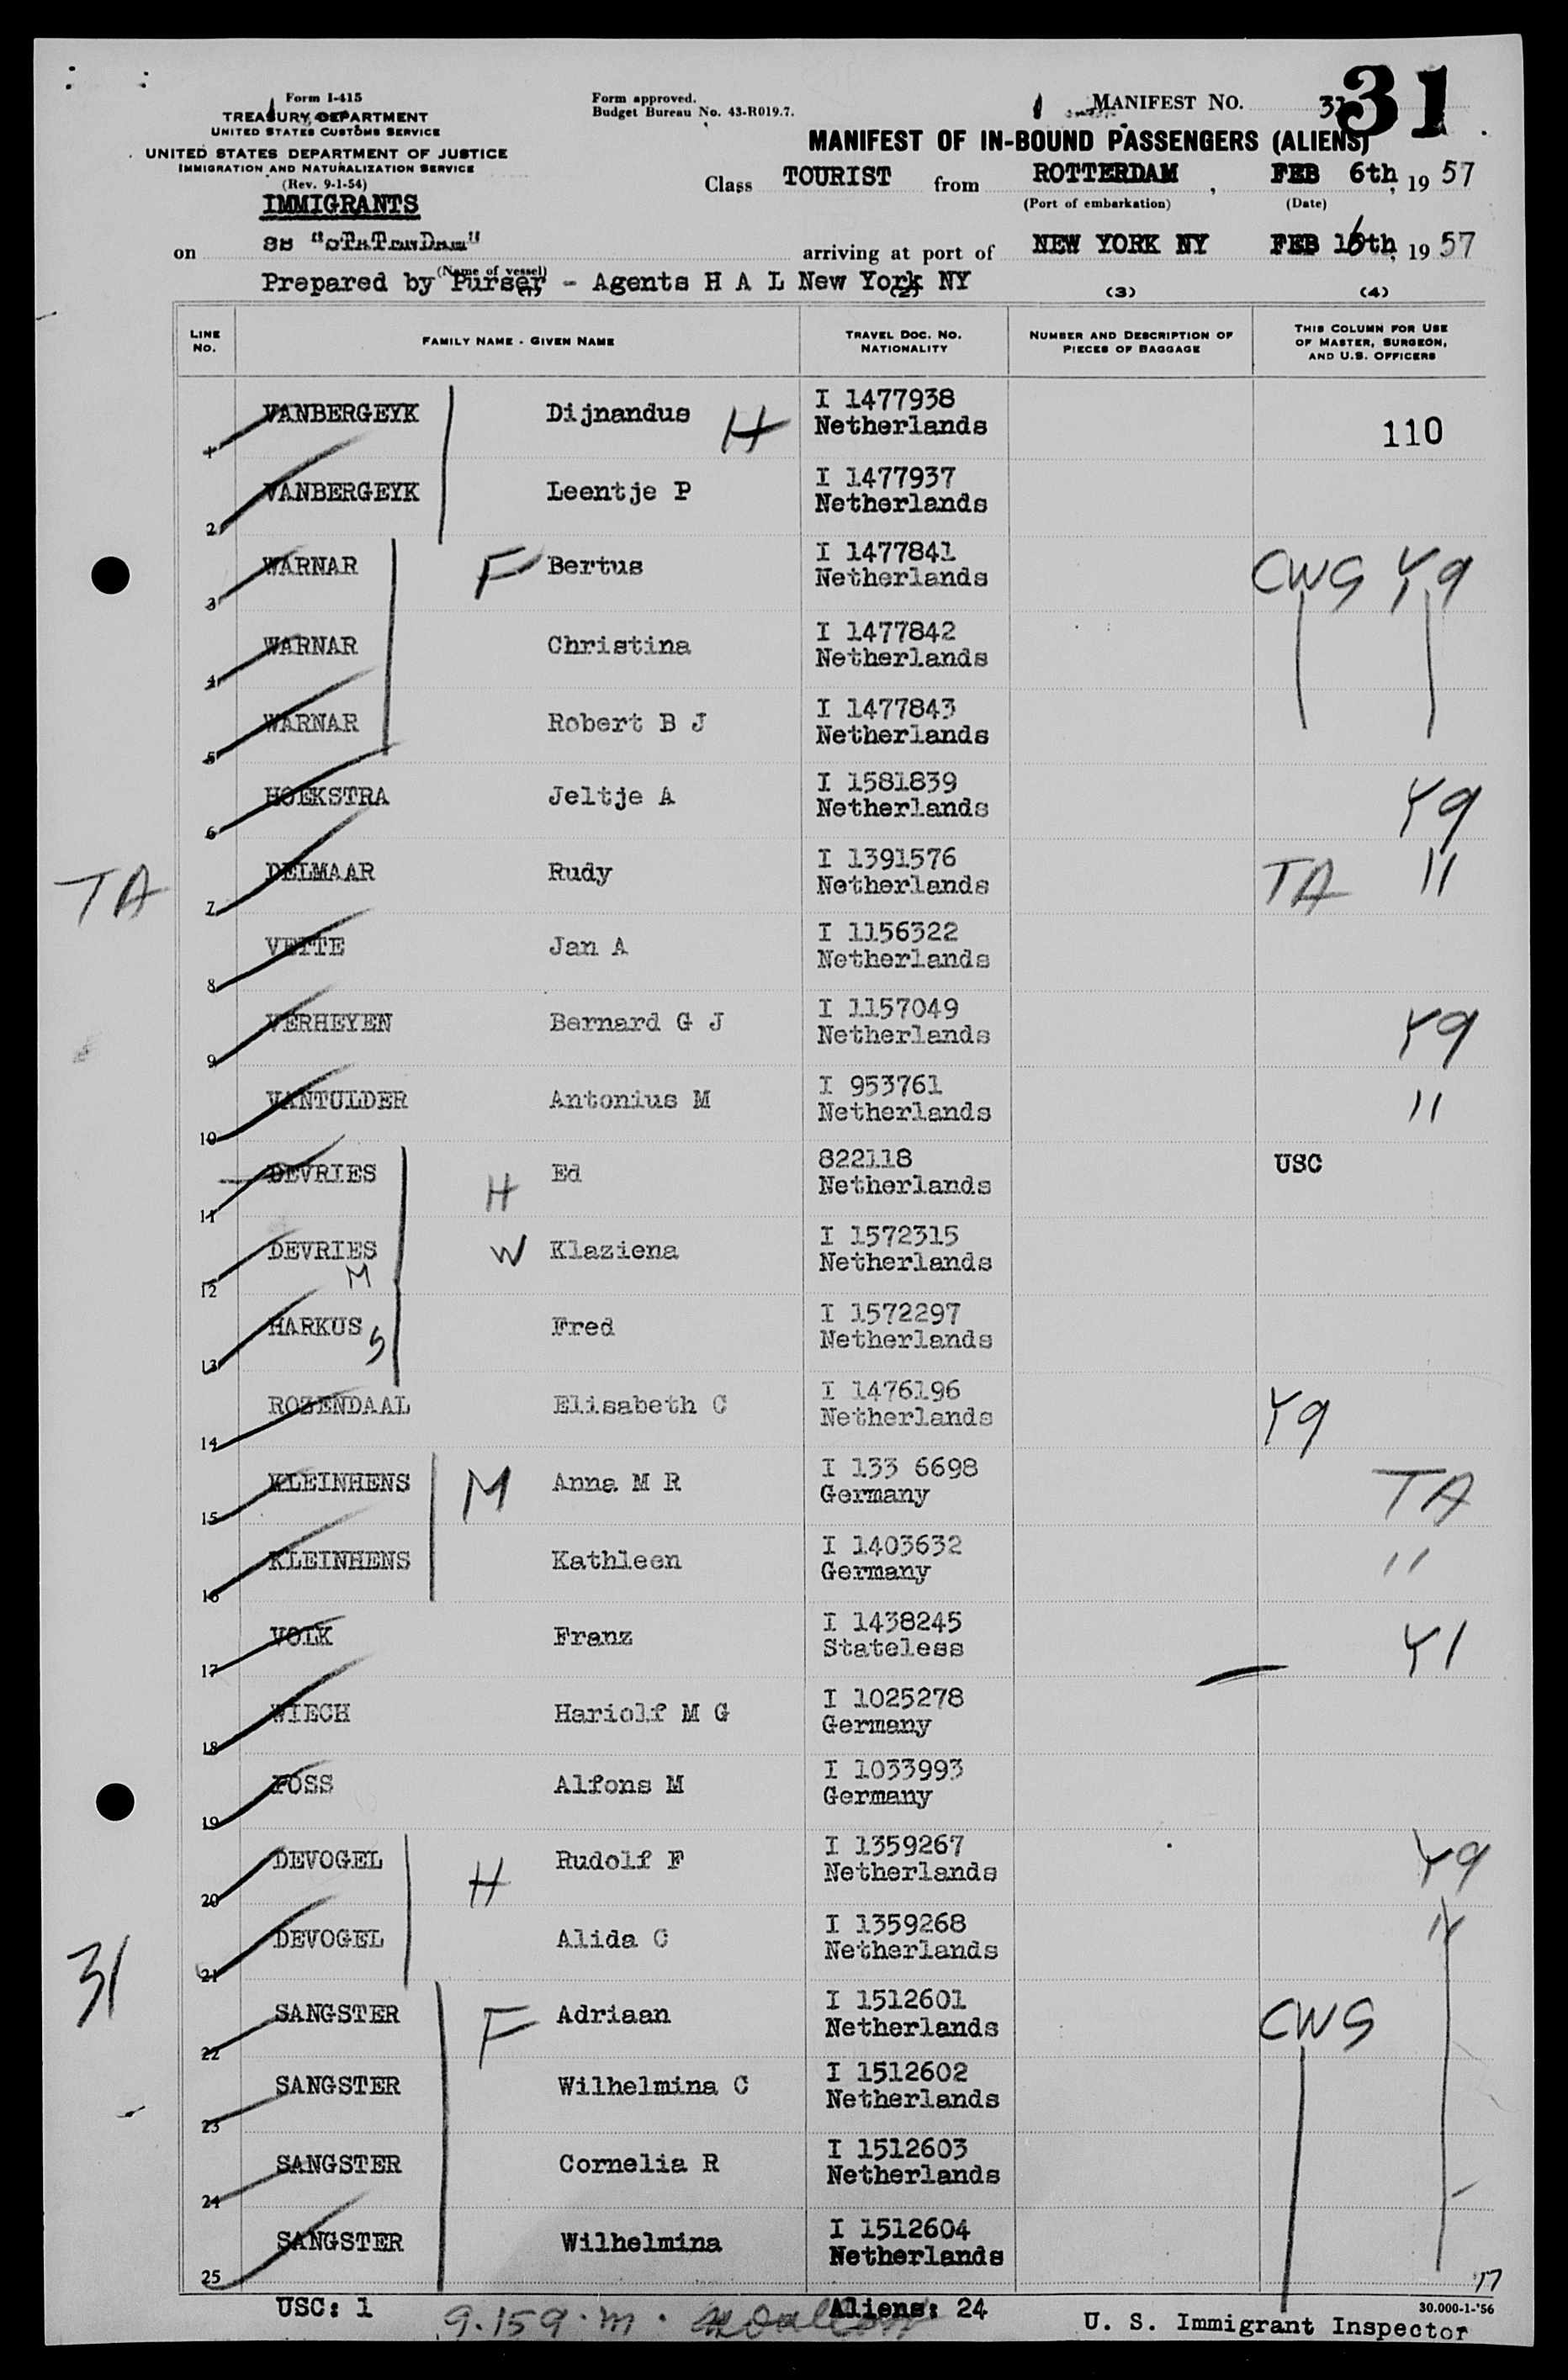 Form I-415
TREASURY DEPARTMENT
UNITED STATES CUSTOMS SERVICE
UNITED STATES DEPARTMENT OF JUSTICE
IMMIGRATION AND NATURALIZATION SERVICE
(Rev. 9-1-54)
IMMIGRANTS
Form approved.
Budget Bureau No. 43-R019.7.
MANIFEST NO. 31
MANIFEST OF IN-BOUND PASSENGERS (ALIENS)
Class TOURIST from ROTTERDAM, FEB 6th, 19 57
(Port of embarkation) (Date)
on SS "STATENDAM" arriving at port of NEW YORK NY FEB 16th, 19 57
(Name of vessel)
Prepared by Purser - Agents H A L New York NY
(1) (2) (3) (4)
LINE NO. FAMILY NAME - GIVEN NAME TRAVEL DOC. NO. NATIONALITY NUMBER AND DESCRIPTION OF PIECES OF BAGGAGE THIS COLUMN FOR USE OF MASTER, SURGEON, AND U.S. OFFICERS
1 VANBERGEYK Dijnandus H I 1477938 Netherlands 110
2 VANBERGEYK Leentje P I 1477937 Netherlands
3 WARNAR F Bertus I 1477841 Netherlands CWS Y9
4 WARNAR Christina I 1477842 Netherlands
5 WARNAR Robert B J I 1477843 Netherlands
6 HOEKSTRA Jeltje A I 1581839 Netherlands Y9
TA 7 DELMAAR Rudy I 1391576 Netherlands TA "
8 VETTE Jan A I 1156322 Netherlands
9 VERHEYEN Bernard G J I 1157049 Netherlands Y9
10 VANTULDER Antonius M I 953761 Netherlands "
11 DEVRIES H Ed 822118 Netherlands USC
12 DEVRIES M W Klaziena I 1572315 Netherlands
13 HARKUS S Fred I 1572297 Netherlands
14 ROZENDAAL Elisabeth C I 1476196 Netherlands Y9
15 KLEINHENS M Anna M R I 133 6698 Germany TA
16 KLEINHENS Kathleen I 1403632 Germany "
17 VOLK Franz I 1438245 Stateless Y1
18 WIECH Hariolf M G I 1025278 Germany
19 FOSS Alfons M I 1033993 Germany
20 DEVOGEL H Rudolf F I 1359267 Netherlands Y9
21 DEVOGEL Alida C I 1359268 Netherlands "
31 22 SANGSTER F Adriaan I 1512601 Netherlands CWS
23 SANGSTER Wilhelmina C I 1512602 Netherlands
24 SANGSTER Cornelia R I 1512603 Netherlands
25 SANGSTER Wilhelmina I 1512604 Netherlands
17
USC: 1 9.159.m. Aliens: 24
30.000-1-'56
U. S. Immigrant Inspector